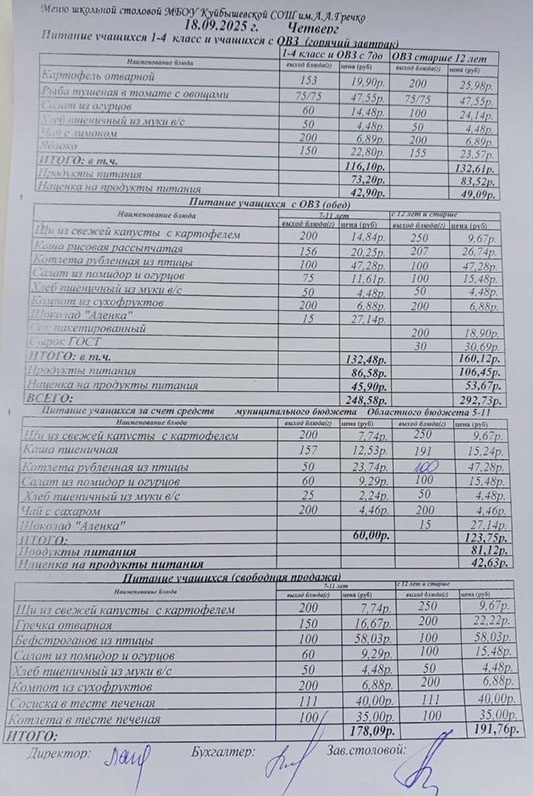 Меню школьной столовой МБОУ Куйбышевской СОШ им.А.А.Гречко
18.09.2025 г. Четверг
Питание учащихся 1-4 класс и учащихся с ОВЗ (горячий завтрак)
Наименование блюда 1-4 класс и ОВЗ с 7до ОВЗ старше 12 лет
выход блюда(г) цена (руб) выход блюда(г) цена (руб)
Картофель отварной 153 19,90р. 200 25,98р.
Рыба тушеная в томате с овощами 75/75 47,55р. 75/75 47,55р.
Салат из огурцов 60 14,48р. 100 24,14р.
Хлеб пшеничный из муки в/с 50 4,48р. 50 4,48р.
Чай с лимоном 200 6,89р. 200 6,89р.
Яблоко 150 22,80р. 155 23,57р.
ИТОГО: в т.ч. 116,10р. 132,61р.
Продукты питания 73,20р. 83,52р.
Наценка на продукты питания 42,90р. 49,09р.
Питание учащихся с ОВЗ (обед)
Наименование блюда 7-11 лет с 12 лет и старше
выход блюда(г) цена (руб) выход блюда(г) цена (руб)
Щи из свежей капусты с картофелем 200 14,84р. 250 9,67р.
Каша рисовая рассыпчатая 156 20,25р. 207 26,74р.
Котлета рубленная из птицы 100 47,28р. 100 47,28р.
Салат из помидор и огурцов 75 11,61р. 100 15,48р.
Хлеб пшеничный из муки в/с 50 4,48р. 50 4,48р.
Компот из сухофруктов 200 6,88р. 200 6,88р.
Шоколад "Аленка" 15 27,14р.
Сок пакетированный 200 18,90р.
Сырок ГОСТ 30 30,69р.
ИТОГО: в т.ч. 132,48р. 160,12р.
Продукты питания 86,58р. 106,45р.
Наценка на продукты питания 45,90р. 53,67р.
ВСЕГО: 248,58р. 292,73р.
Питание учащихся за счет средств муниципального бюджета Областного бюджета 5-11
Наименование блюда выход блюда(г) цена (руб) выход блюда(г) цена (руб)
Щи из свежей капусты с картофелем 200 7,74р. 250 9,67р.
Каша пшеничная 157 12,53р. 191 15,24р.
Котлета рубленная из птицы 50 23,74р. 100 47,28р.
Салат из помидор и огурцов 60 9,29р. 100 15,48р.
Хлеб пшеничный из муки в/с 25 2,24р. 50 4,48р.
Чай с сахаром 200 4,46р. 200 4,46р.
Шоколад "Аленка" 15 27,14р.
ИТОГО: 60,00р. 123,75р.
Продукты питания 81,12р.
Наценка на продукты питания 42,63р.
Питание учащихся (свободная продажа)
Наименование блюда 7-11 лет с 12 лет и старше
выход блюда(г) цена (руб) выход блюда(г) цена (руб)
Щи из свежей капусты с картофелем 200 7,74р. 250 9,67р.
Гречка отварная 150 16,67р. 200 22,22р.
Бефстроганов из птицы 100 58,03р. 100 58,03р.
Салат из помидор и огурцов 60 9,29р. 100 15,48р.
Хлеб пшеничный из муки в/с 50 4,48р. 50 4,48р.
Компот из сухофруктов 200 6,88р. 200 6,88р.
Сосиска в тесте печеная 111 40,00р. 111 40,00р.
Котлета в тесте печеная 100 35,00р. 100 35,00р.
ИТОГО: 178,09р. 191,76р.
Директор: Бухгалтер: Зав.столовой: